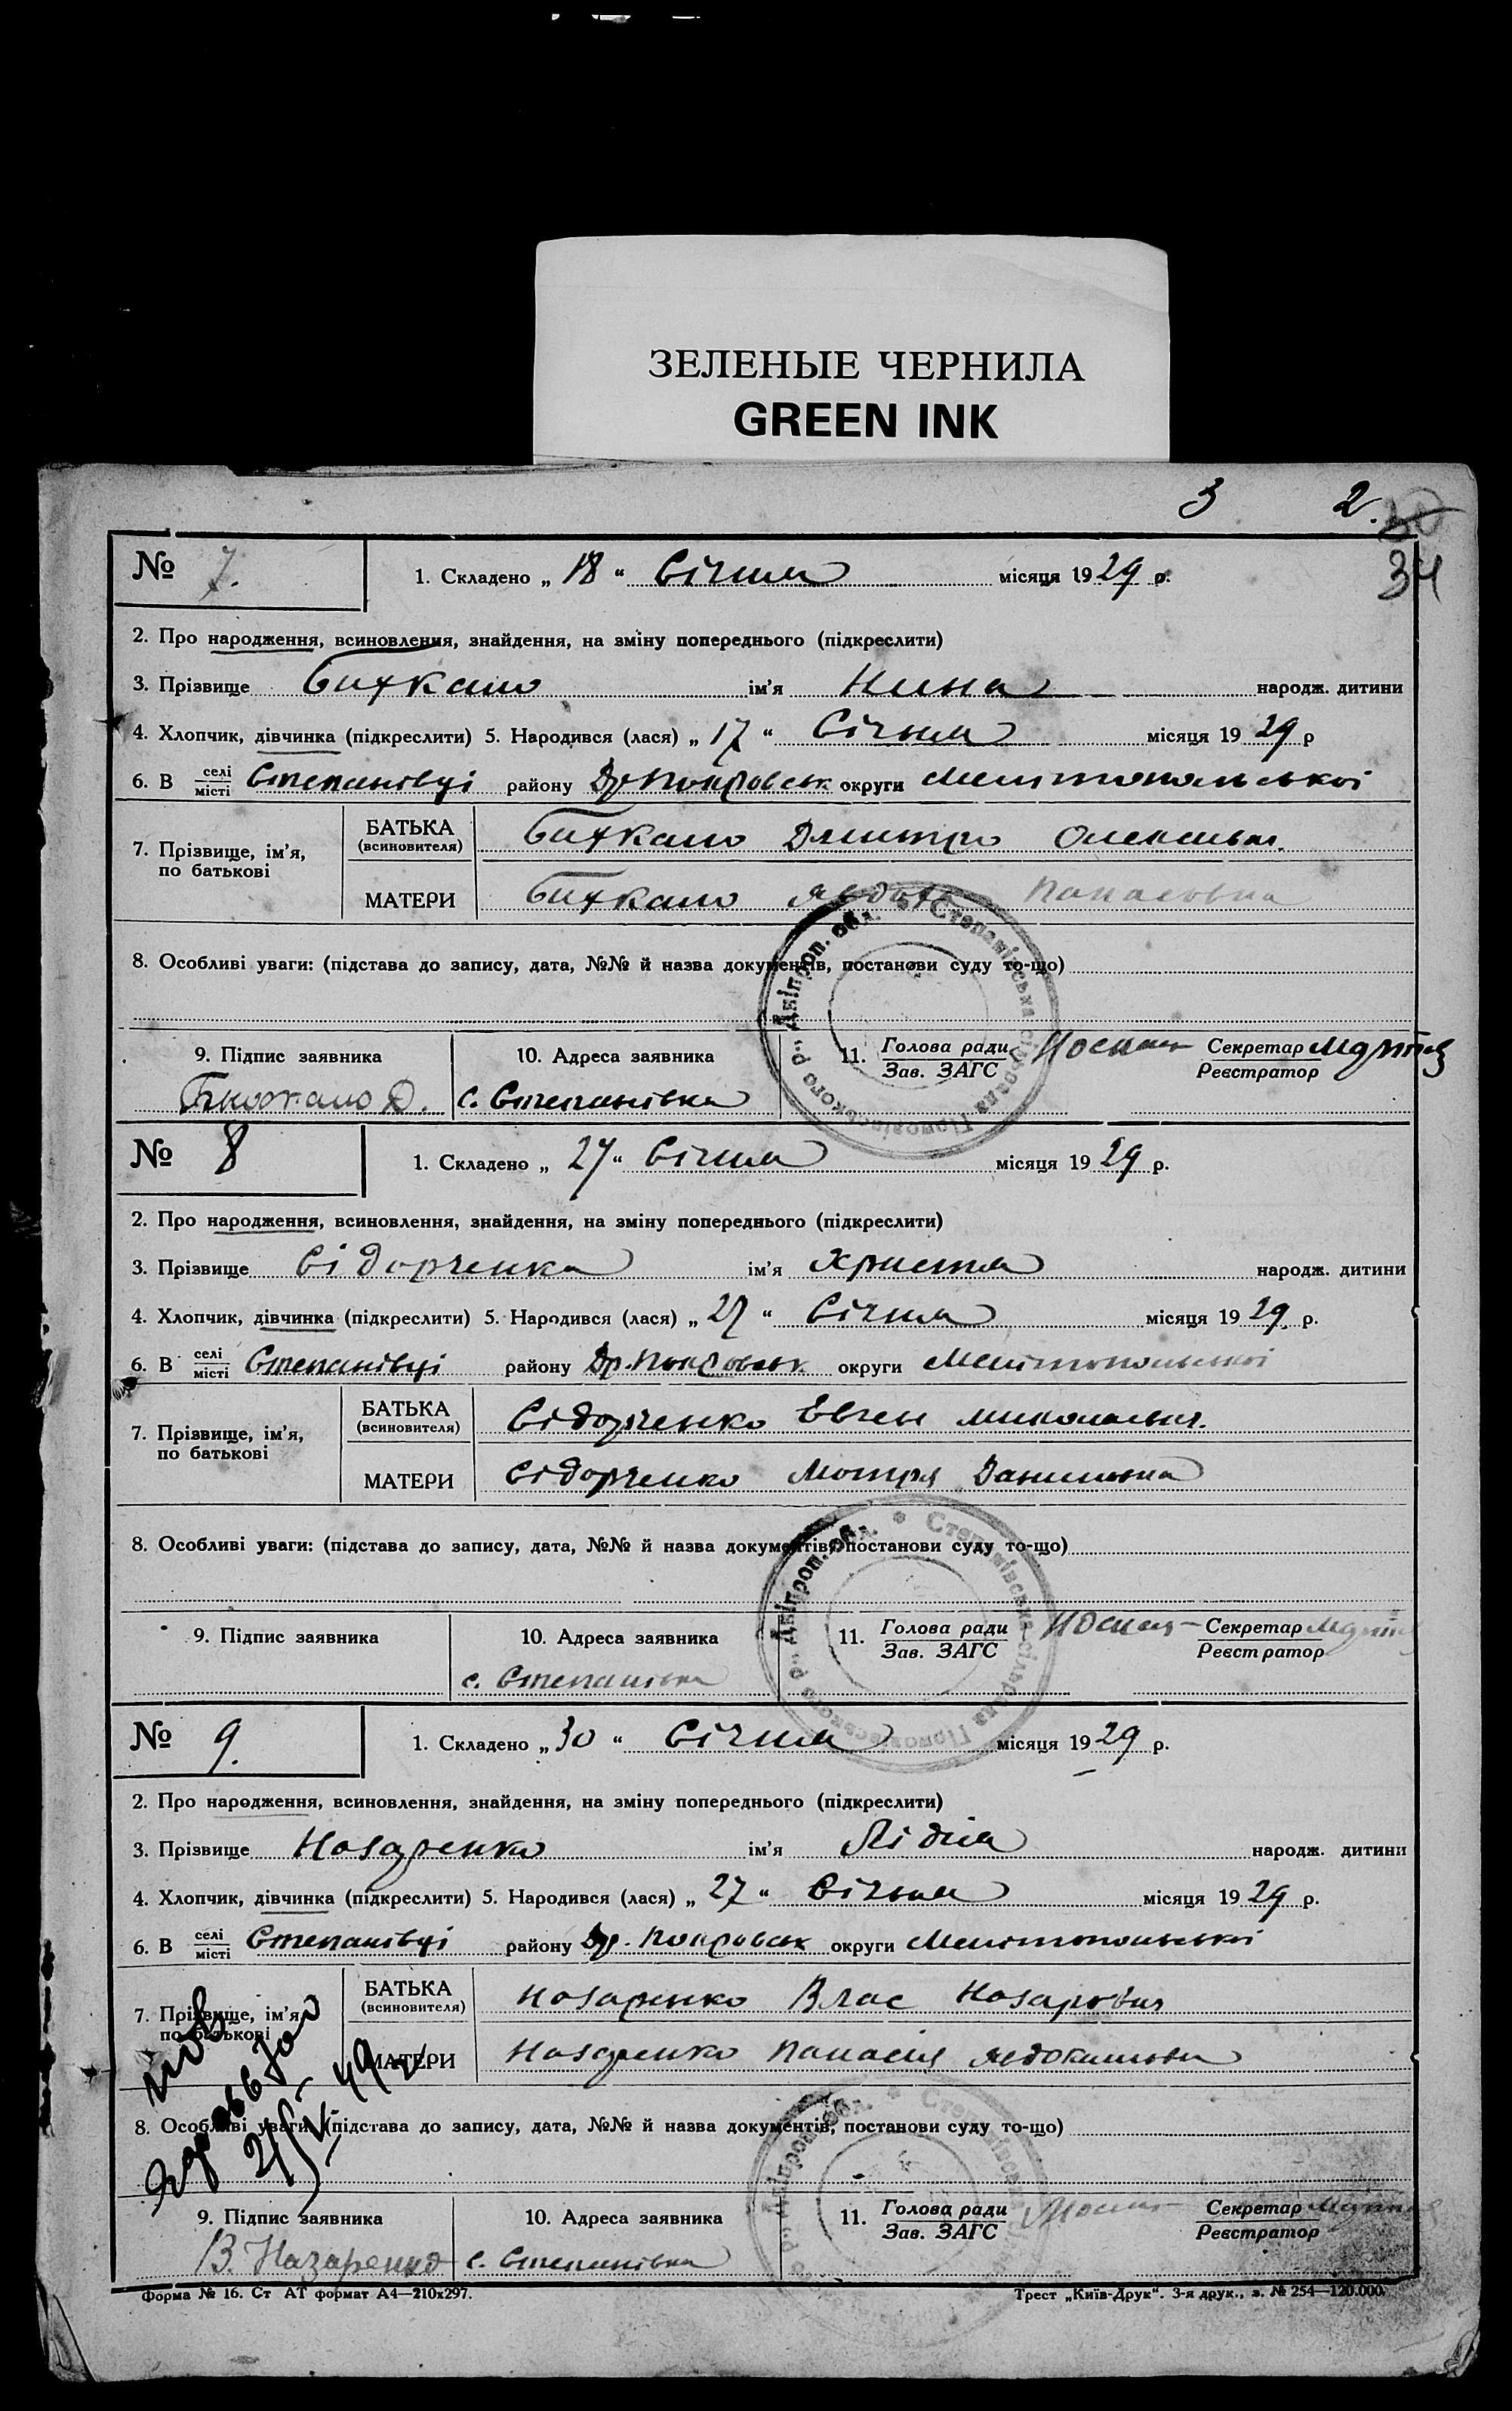 ЗЕЛЕНЫЕ ЧЕРНИЛА
GREEN INK
3 2. 30
34
№ 7. 1. Складено „ 18 “ Січня місяця 1929 р.
2. Про народження, всиновлення, знайдення, на зміну попереднього (підкреслити)
3. Прізвище ім'я Нина народж. дитини
4. Хлопчик, дівчинка (підкреслити) 5. Народився (лася) „ 17 “ Січня місяця 1929 р
6. В селі місті Степанівці району Др. Покровськ округи Мелітопольської
7. Прізвище, ім'я, по батькові
БАТЬКА (всиновителя) Дмитро
МАТЕРИ Явдоха Панасовна
8. Особливі уваги: (підстава до запису, дата, №№ й назва документів, постанови суду то-що)
9. Підпис заявника 10. Адреса заявника 11. Голова ради Зав. ЗАГС Секретар Реєстратор
с. Степанівка
Дніпроп. обл. * Степанівська сільрада
№ 8 1. Складено „ 27 “ Січня місяця 1929 р.
2. Про народження, всиновлення, знайдення, на зміну попереднього (підкреслити)
3. Прізвище Сідорченко ім'я Христя народж. дитини
4. Хлопчик, дівчинка (підкреслити) 5. Народився (лася) „ 27 “ Січня місяця 1929 р.
6. В селі місті Степанівці району Др. Покровськ округи Мелітопольської
7. Прізвище, ім'я, по батькові
БАТЬКА (всиновителя) Сідорченко Евген Миколаєвич.
МАТЕРИ Сідорченко Мотря Даниловна
8. Особливі уваги: (підстава до запису, дата, №№ й назва документів, постанови суду то-що)
9. Підпис заявника 10. Адреса заявника 11. Голова ради Зав. ЗАГС Секретар Реєстратор
с. Степанівка
Дніпроп. обл. * Степанівська сільрада
№ 9. 1. Складено „ 30 “ Січня місяця 1929 р.
2. Про народження, всиновлення, знайдення, на зміну попереднього (підкреслити)
3. Прізвище Назаренко ім'я Лідія народж. дитини
4. Хлопчик, дівчинка (підкреслити) 5. Народився (лася) „ 27 “ Січня місяця 1929 р.
6. В селі місті Степанівці району Др. Покровськ округи Мелітопольської
7. Прізвище, ім'я, по батькові
БАТЬКА (всиновителя) Назаренко Влас Назарович
МАТЕРИ Назаренко Панасія
8. Особливі уваги: (підстава до запису, дата, №№ й назва документів, постанови суду то-що)
9. Підпис заявника 10. Адреса заявника 11. Голова ради Зав. ЗАГС Секретар Реєстратор
В. Назаренко с. Степанівка
Форма № 16. Ст АТ формат А4—210x297. Трест „Київ-Друк“. 3-я друк., з. № 254—120.000.